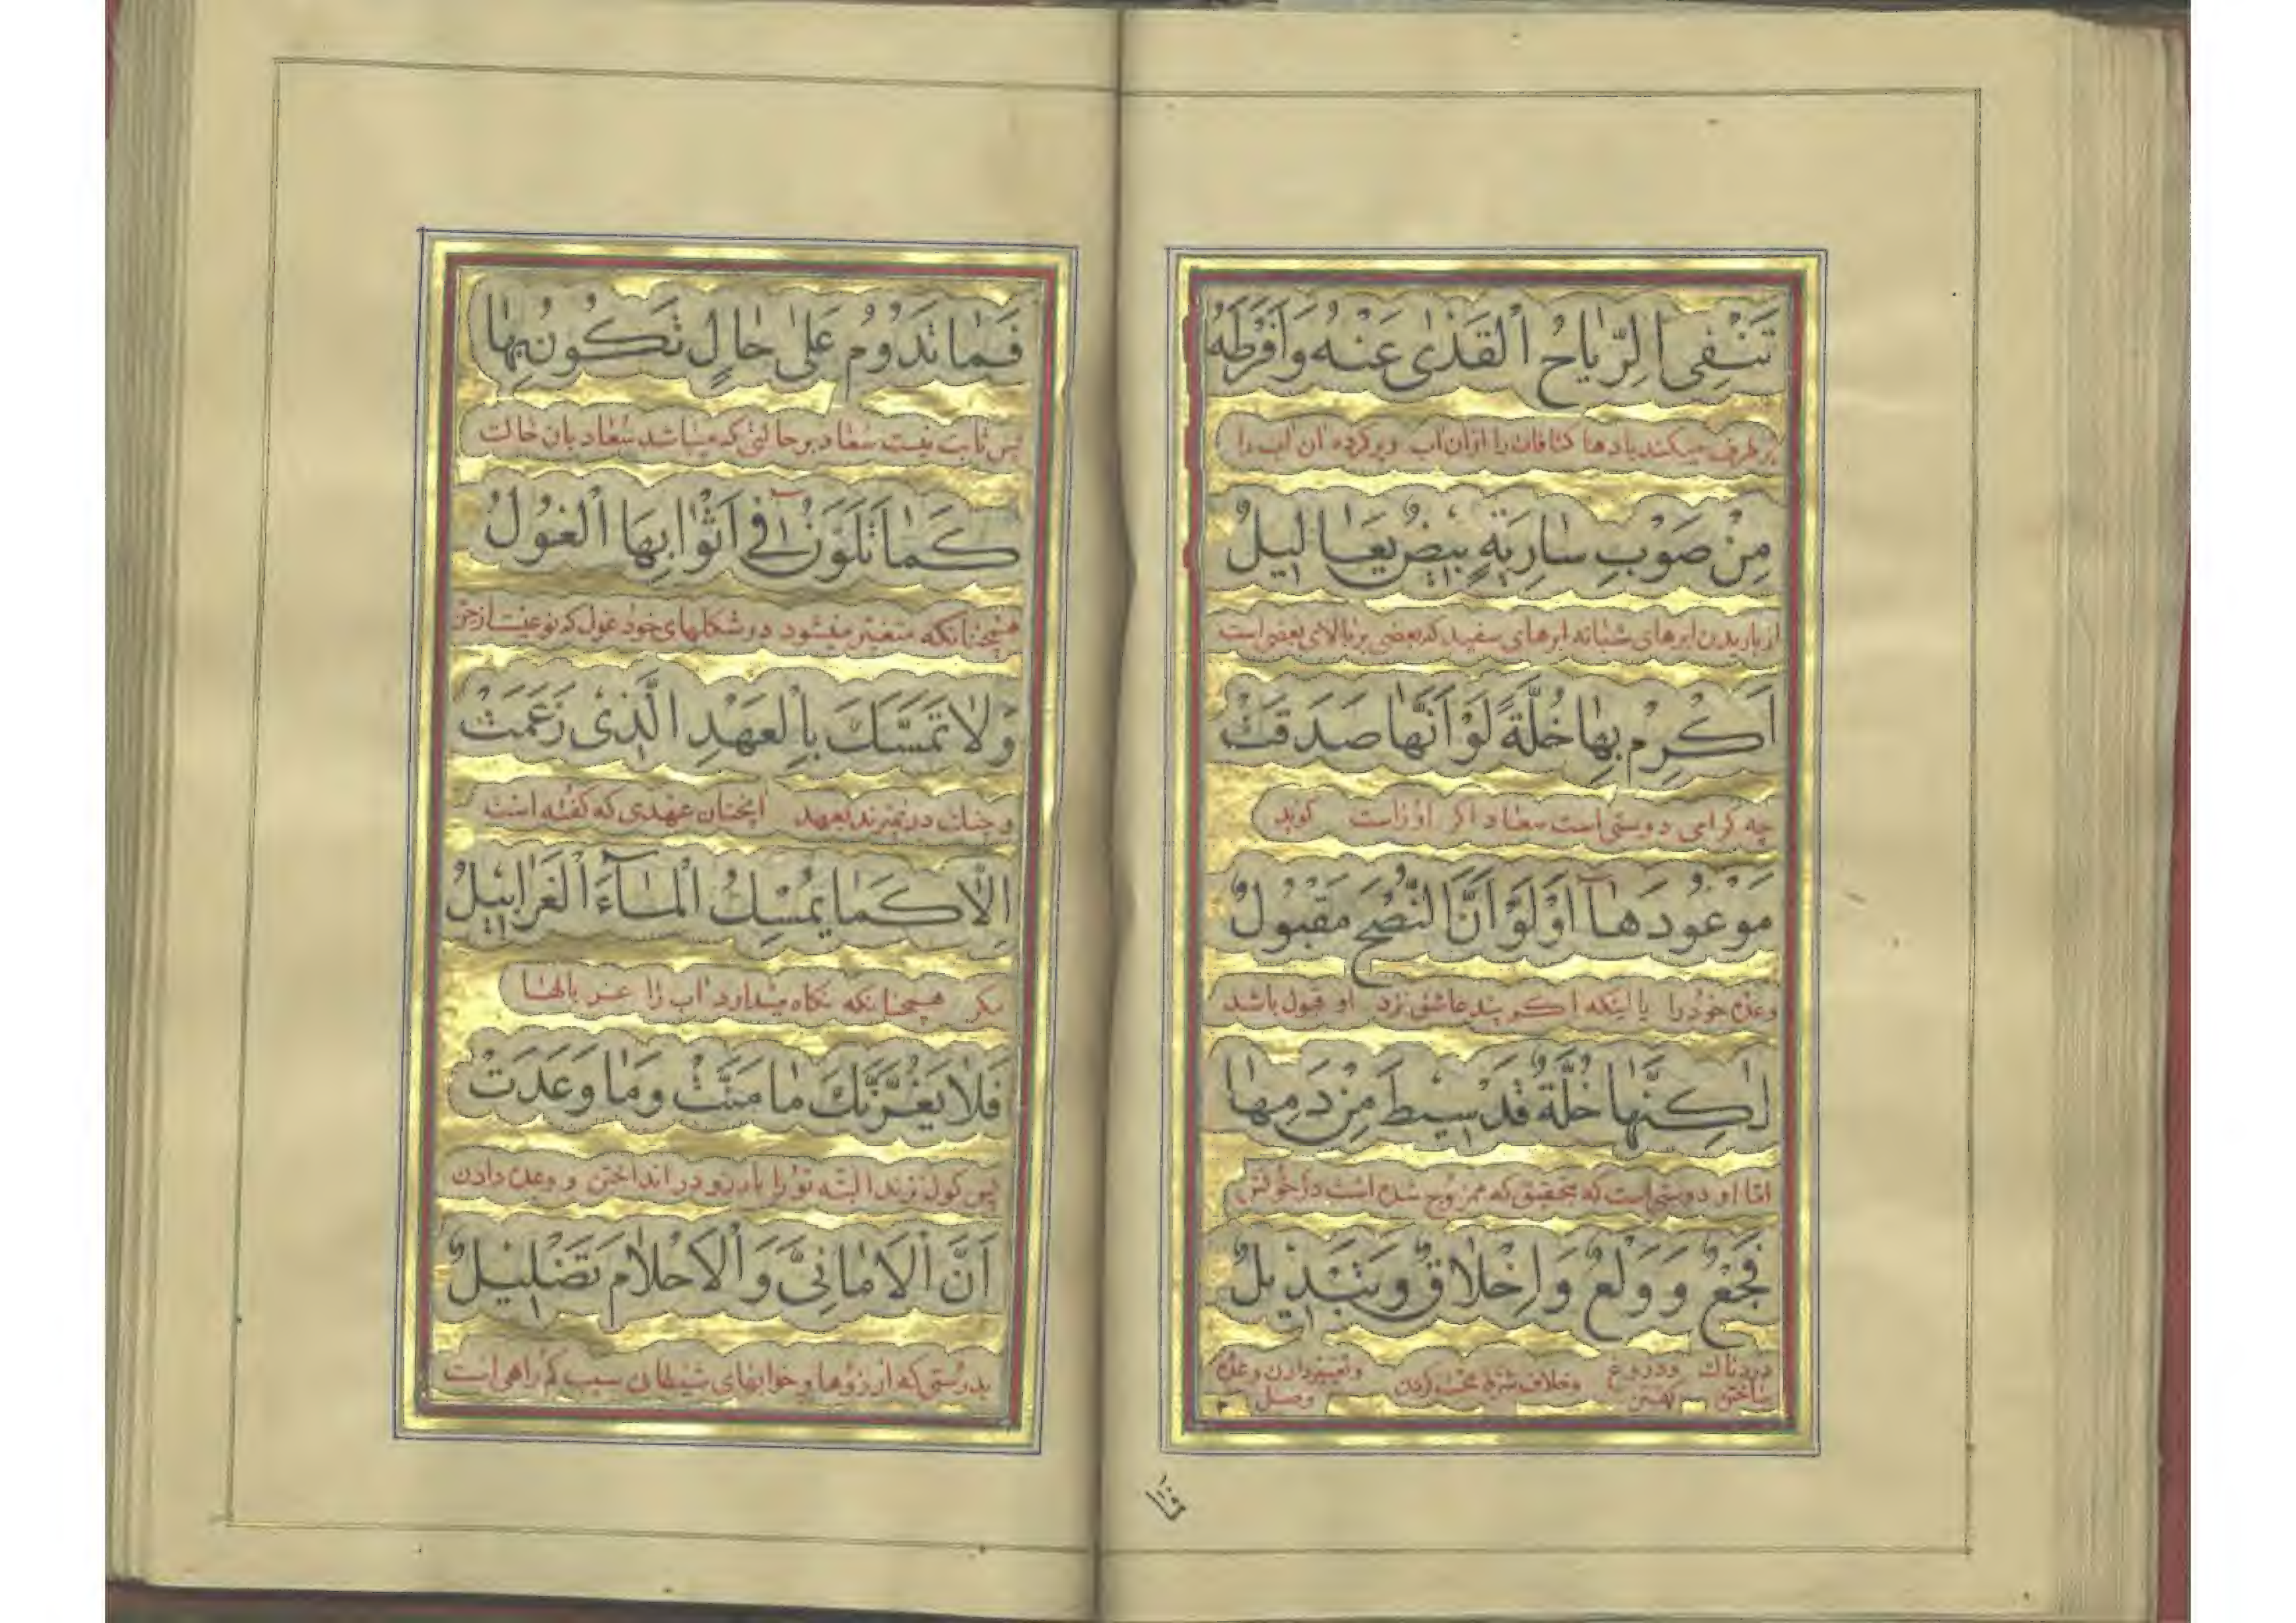 تَنْفِى الرِّيٰاحُ الْقَذٰى عَنْهُ وَاَفْرَطَهُ
برطرف میکند بادها کثافات را از آن اب و پر کرده آن اب را
مِنْ صَوْبِ سٰارِيَةٍ بيضٌ يَعٰالِيلٌ
از باریدن ابرهای شبانه ابرهای سفید که بعضی بر بالای بعضی است
اَكْرِمْ بِهٰا خُلَّةً لَوْ اَنَّهٰا صَدَقَتْ
چه کرامی دوستی است سعاد اکر او راست کوید
مَوْعُودَهٰا اَوْ لَوْ اَنَّ النُّصْحَ مَقْبُولٌ
وعده خود را یا اینکه اکر پند عاشق نزد او قبول باشد
لٰكِنَّهٰا خُلَّةٌ قَدْ سيطَ مِنْ دَمِهٰا
امّا او دوستی است که بتحقیق که ممزوج شده است در خونش
فَجْعٌ وَ وَلْعٌ وَ اِخْلٰاقٌ وَ تَبْديلٌ
دردناك ساختن ودروغ کفتن وخلاف شرط محبت کردن وتغییر دادن وعده وصل
فَمٰا تَدُوْمُ عَلىٰ حٰالٍ تَكُونُ بِهٰا
پس ثابت نیست سعاد بر حالتی که میباشد سعاد بان حالت
كَمٰا تَلَوَّنُ فى اَثْوٰابِهَا الْغُولُ
همچنانکه متغیر میشود در شکلهای خود غول که نوعیست از جن
وَ لٰا تَمَسَّكَ بِالْعَهْدِ الَّذى زَعَمَتْ
و چنك در نمیزند بعهد انچنان عهدی که کفته است
اِلّٰا كَمٰا يُمْسِكُ الْمٰآءَ الْغَرٰابيلُ
مکر همچنانکه نکاه میدارد اب را غربالها
فَلٰا يَغُرَّنْكَ مٰا مَنَّتْ وَ مٰا وَعَدَتْ
پس کول نزند البته تو را بارزو در انداختن و وعده دادن
اَنَّ الْاَمٰانِىَّ وَ الْاَحْلٰامَ تَضْليلٌ
بدرستی که ارزوها و خوابهای شیطانی سبب کمراهی است